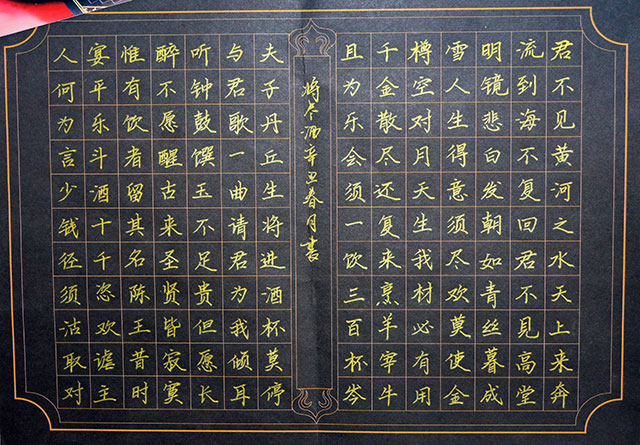 君不见黄河之水天上来奔
流到海不复回君不见高堂
明镜悲白发朝如青丝暮成
雪人生得意须尽欢莫使金
樽空对月天生我材必有用
千金散尽还复来烹羊宰牛
且为乐会须一饮三百杯岑
将尽酒辛丑春月书
夫子丹丘生将进酒杯莫停
与君歌一曲请君为我倾耳
听钟鼓馔玉不足贵但愿长
醉不愿醒古来圣贤皆寂寞
惟有饮者留其名陈王昔时
宴平乐斗酒十千恣欢谑主
人何为言少钱径须沽取对